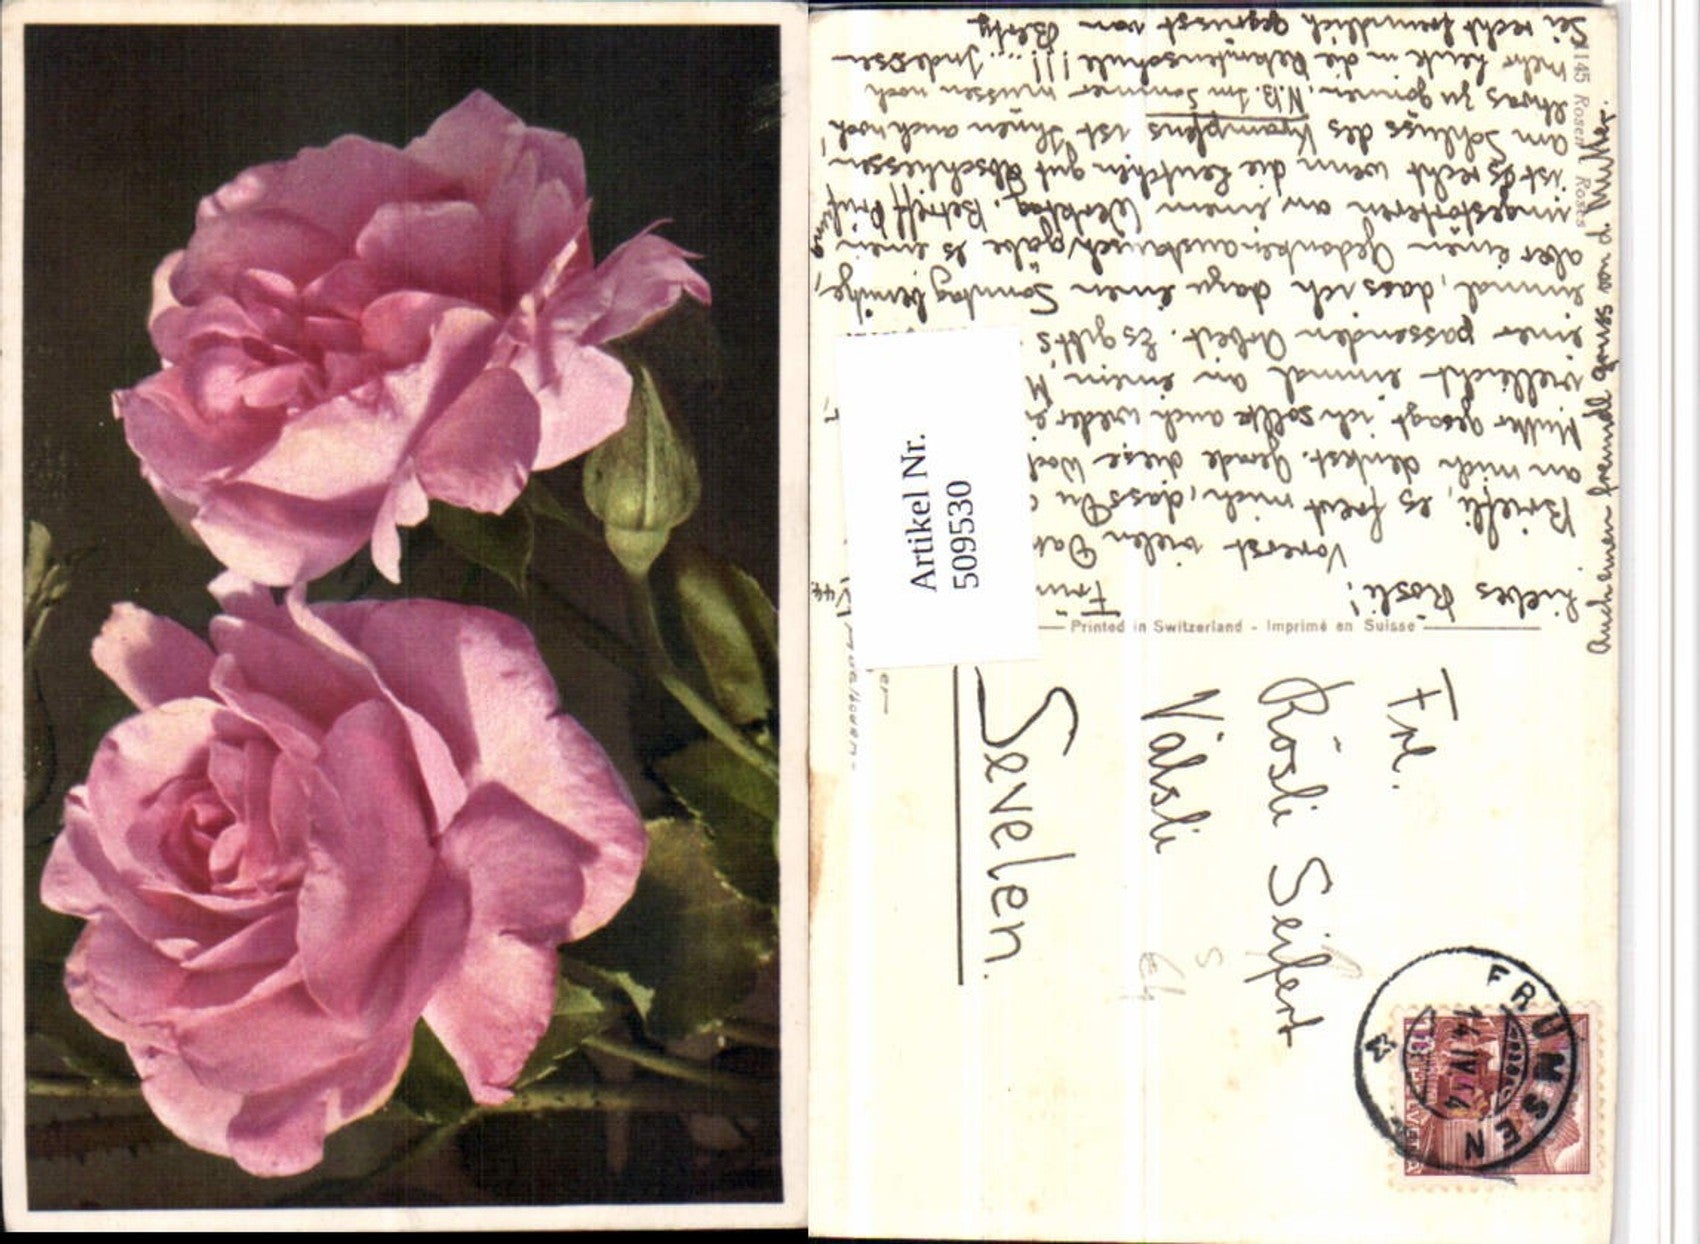 Frümsen
44
Liebes Rösli!
Vorerst vielen Dank
Briefli, es freut mich, dass Du
an mich denkst. Gerade diese
Mutter gesagt ich sollte auch wieder
vielleicht einmal an einem
einer passenden Arbeit. Es gibt's
einmal, dass ich dazu einen Sonntag benütze,
aber einen Gedankenaustausch gäbe es einen
ungestörteren an einem Werktag. Betreff Prüfung
ist es recht wenn die Leutchen gut abschliessen
am Schluss des Krampfens ist Ihnen auch noch
etwas zu gönnen. N.B. Im Sommer müssen noch
mehr Leute in die Rekrutenschule!!!... Indessen
Sei recht freundlich gegrüsst von Betty
Auch einen freundl. Gruss von d. Mutter.
1145 Rosen Roses
Artikel Nr.
509530
Printed in Switzerland - Imprimé en Suisse
Frl.
Rösli Seifert
Valsli
Sevelen.
FRÜMSEN
14.IV.44